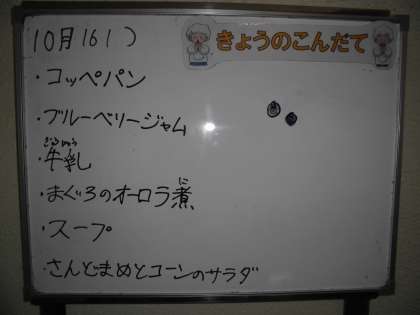 10月16( )
きょうのこんだて
・コッペパン
・ブルーベリージャム
ぎゅうにゅう
・牛乳
に
・まぐろのオーロラ煮
・スープ
・さんどまめとコーンのサラダ